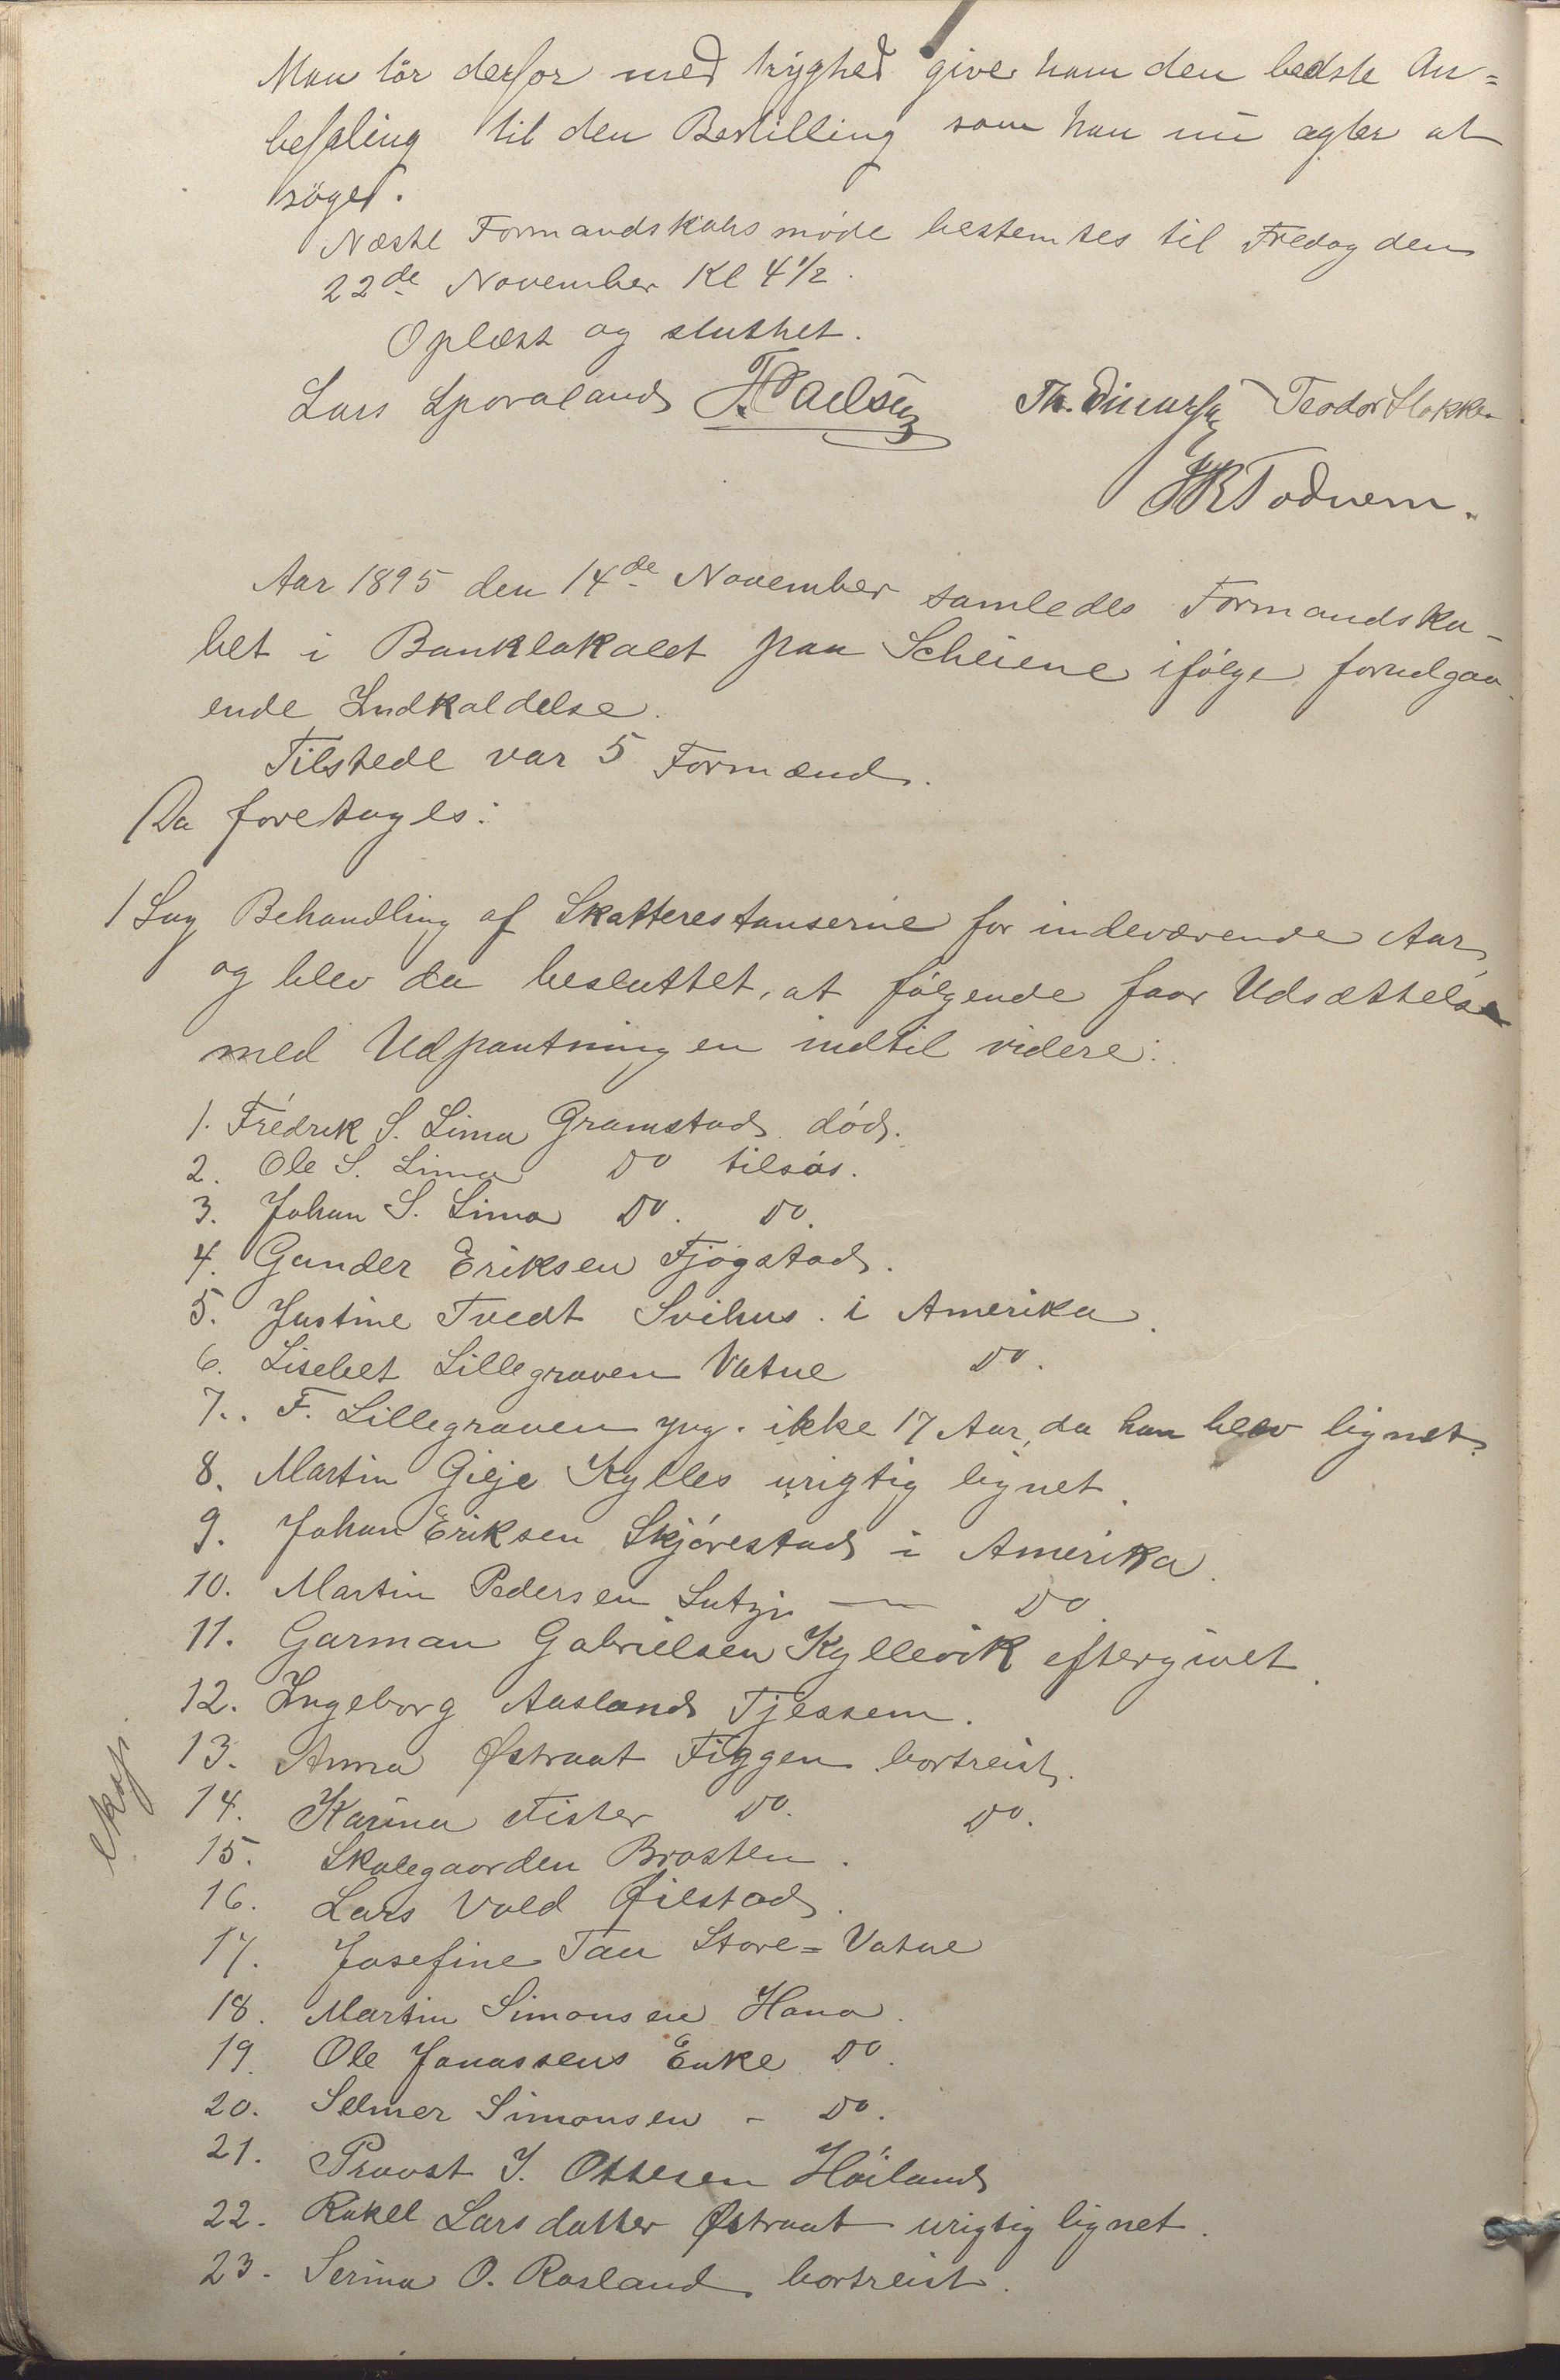 Man tör derfor med tryghed give ham den bedste An=
befaling til den Bestilling som han nu agter at
söge.
Næste Formandskabsmöde bestemtes til Fredag den
22de November Kl 4 1/2.
Oplæst og sluttet.
Lars Sporaland Th. Einarsen Teodor Stokken
Todnem.
Aar 1895 den 14de November samledes Formandska-
bet i Banklokalet paa Scheiene ifölge forudgaa-
ende Indkaldelse.
Tilstede var 5 Formænd.
Da foretoges:
1 Sag Behandling af Skatterestanserne for indeværende Aar,
og blev da besluttet, at fölgende faar Udsættelse
med Udpantningen indtil videre:
1. Fredrik S. Lima Gramstad död.
2. Ole S. Lima Do tilsös.
3. Johan S. Lima Do. Do.
4. Gunder Eriksen Fjogstad.
5. Justine Tvedt Svihus i Amerika.
6. Lisebet Lillegraven Vatne Do.
7. F. Lillegraven yng. ikke 17 Aar, da han blev lignet.
8. Martin Gilje Kylles urigtig lignet.
9. Johan Eriksen Skjörestad i Amerika.
10. Martin Pedersen Lutsi — Do.
11. Garman Gabrielsen Kyllevik eftergivet.
12. Ingeborg Aasland Tjessem.
13. Anna Østraat Figgen bortreist.
eksp.
14. Karina Tister Do. Do.
15. Skolegaarden Brasten.
16. Lars Vold Øilstad.
17. Josefine Tau Store=Vatne
18. Martin Simonsen Hana.
19. Ole Jonassens Enke Do.
20. Selmer Simonsen - Do.
21. Provst J. Ottesen Höiland
22. Rakel Larsdatter Østraat urigtig lignet.
23. Serina O. Rosland bortreist.